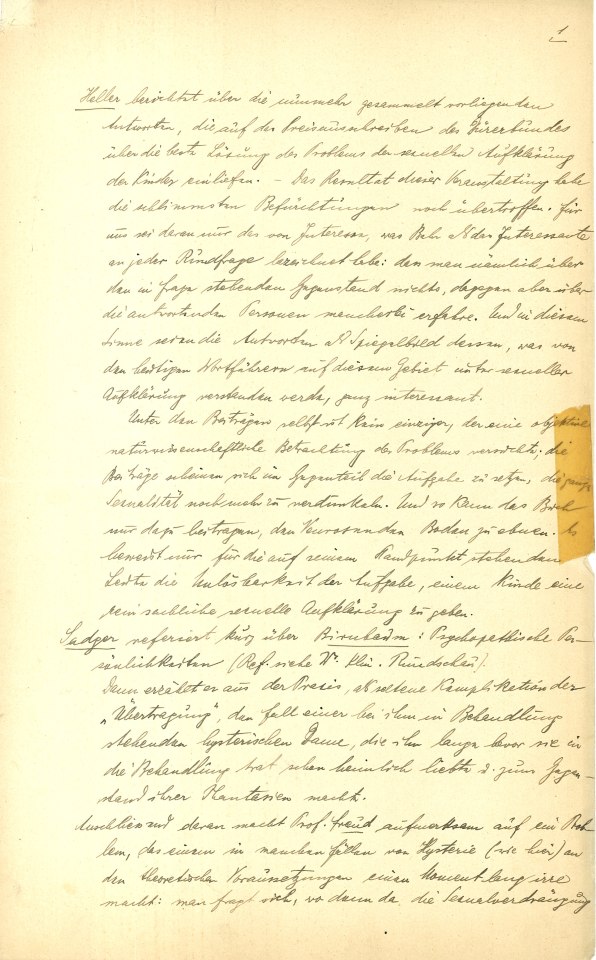 1
Heller berichtet über die nunmehr gesammelt vorliegenden
Antworten, die auf das Preisausschreiben des Dürerbundes
über die beste Lösung des Problems der sexuellen Aufklärung
der Kinder einliefen. – Das Resultat dieser Veranstaltung habe
die schlimmsten Befürchtungen noch übertroffen. Für
uns sei daran nur das von Interesse, was Bahr als das Interessante
an jeder Rundfrage bezeichnet habe: dass man nämlich über
den in Frage stehenden Gegenstand nichts, dagegen aber über
die antwortenden Personen mancherlei erfahre. Und in diesem
Sinne seien die Antworten als Spiegelbild dessen, was von
den heutigen Wortführern auf diesem Gebiet unter sexueller
Aufklärung verstanden werde, ganz interessant.
Unter den Beiträgen selbst ist kein einziger, der eine objektive
naturwissenschaftliche Betrachtung des Problems versuchte; die
Beiträge scheinen sich im Gegenteil die Aufgabe zu setzen, die ganze
Sexualität noch mehr zu verdunkeln. Und so kann das Buch
nur dazu beitragen, den Neurosen den Boden zu ebnen. Es
beweist nur für die auf seinem Standpunkt stehenden
Leute die Unlösbarkeit der Aufgabe, einem Kinde eine
rein sachliche sexuelle Aufklärung zu geben.
Sadger referiert kurz über Birnbaum: Psychopathische Per-
sönlichkeiten (Ref. siehe W. klin. Rundschau).
Dann erzählt er aus der Praxis, als seltene Komplikation der
„Übertragung", den Fall einer bei ihm in Behandlung
stehenden hysterischen Dame, die ihn lange bevor sie in
die Behandlung trat schon heimlich liebte u. zum Gegen-
stand ihrer Phantasien macht.
Anschliessend daran macht Prof. Freud aufmerksam auf ein Prob-
lem, das einen in manchen Fällen von Hysterie (wie hier) an
den theoretischen Voraussetzungen einen Moment lang irre
macht: man fragt sich, wo denn da die Sexualverdrängung